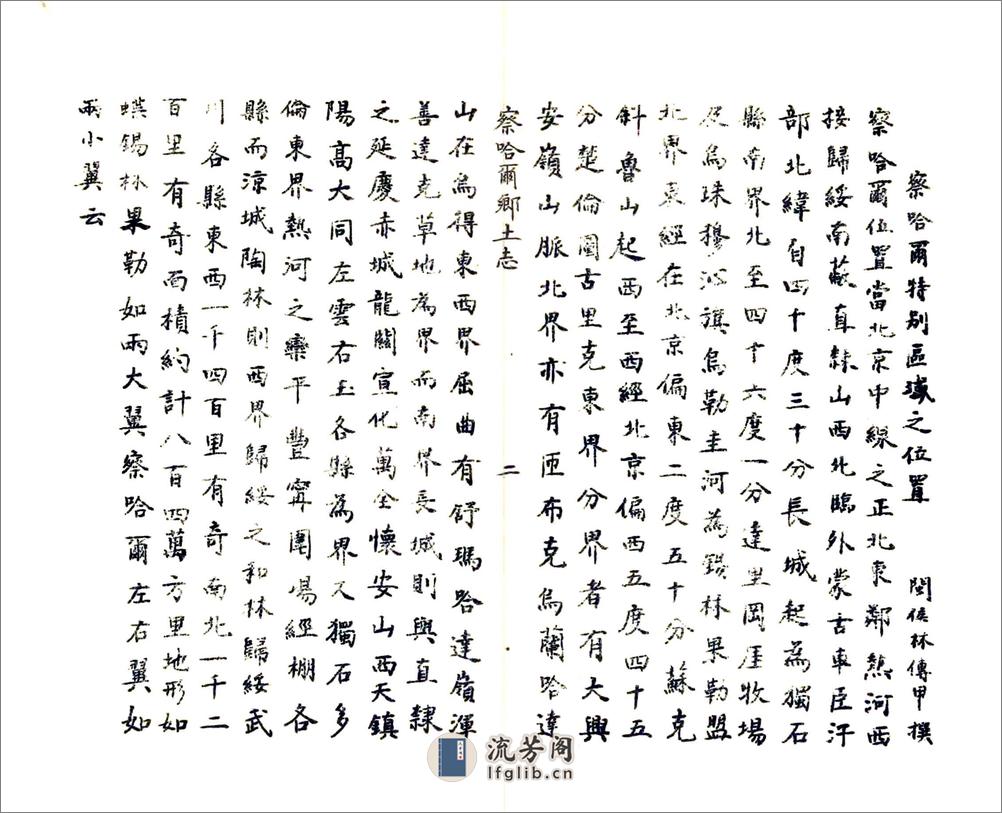 察哈爾特別區域之位置　閩侯林傳甲撰
察哈爾位置當北京中線之正北東鄰熱河西
接歸綏南蔽直隸山西北臨外蒙古車臣汗
部北緯自四十度三十分長城起為獨石
縣南界北至四十六度一分達里岡厓牧場
及烏珠穆沁旗烏勒圭河為錫林果勒盟
北界袤經在北京偏東二度五十分蘇克
斜魯山起西至西經北京偏西五度四十五
分楚倫圖古里克東界分界者有大興
安嶺山脈北界亦有匝布克烏蘭哈達
察哈爾鄉土志　二
山在烏得東西界屈曲有舒瑪哈達嶺渾
善達克草地為界而南界長城則與直隸
之延慶赤城龍關宣化萬全懷安山西天鎮
陽高大同左雲右玉各縣為界又獨石多
倫東界熱河之灤平豐寧圍場經棚各
縣而涼城陶林則西界歸綏之和林歸綏武
川各縣東西一千四百里有奇南北一千二
百里有奇面積約計八百四萬方里地形如
蝶錫林果勒如兩大翼察哈爾左右翼如
兩小翼云
流芳阁
lfglib.cn